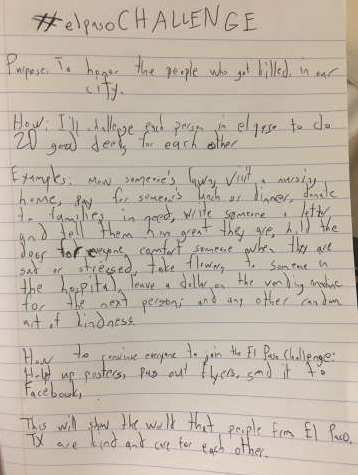 #elpasoCHALLENGE
Purpose: To honor the people who got killed in our
city.
How: I'll challenge each person in elpaso to do
20 good deeds for each other
Examples: mow someone's lawn, visit a nursing
home, pay for someone's lunch or dinner, donate
to families in need, write someone a letter
and tell them how great they are, hold the
door for everyone comfort someone when they are
sad or stressed, take flowers to someone in
the hospital, leave a dollar on the vending machine
for the next person, and any other random
act of kindness.
How to convince everyone to join the El Paso Challenge:
up posters, pass out flyers, send it to
Facebook,
This will show the world that people from El Paso,
TX are kind and care for each other.